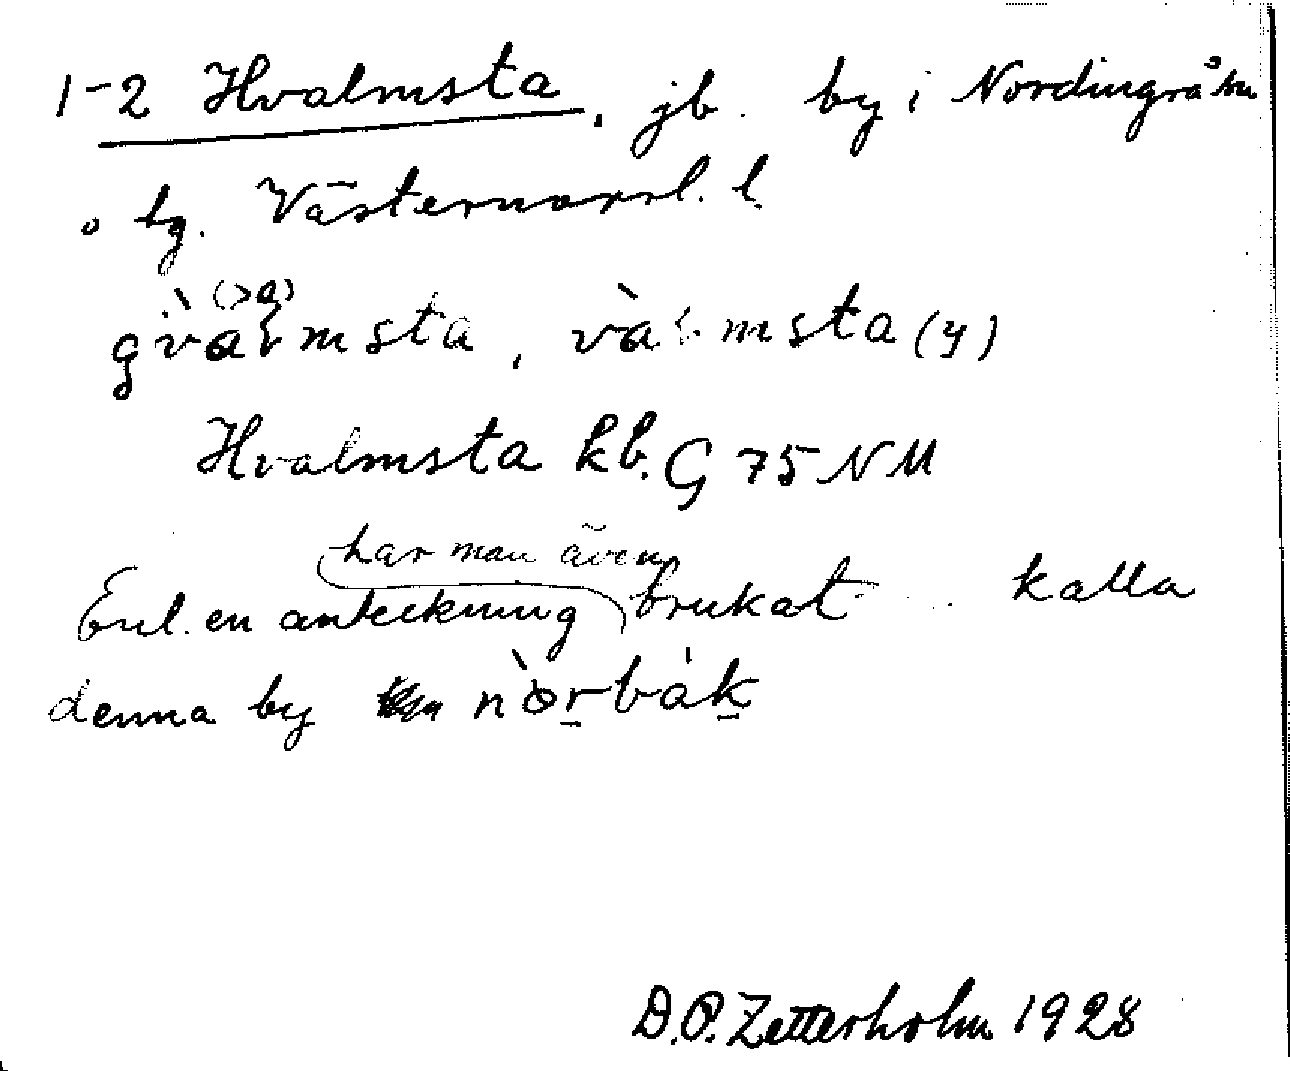 1-2 Hvalmsta, jb. by i Nordingrå sn
o tg. Västernorrl. l.
(>a)
gvàɽmsta, vàɽmsta (y)
Hvalmsta kb. G 75 NM
har man även
Enl. en anteckning brukat kalla
denna by nòrbàk
D.O.Zetterholm 1928